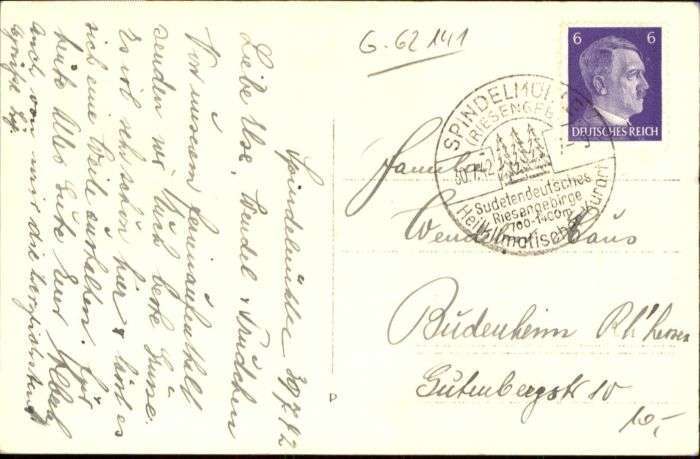 Spindelmühle 30.7.42
Liebe Ilse, Wendel & Trudchen
Von unserem Ferienaufenthalt
senden wir Euch beste Grüsse.
Es ist sehr schön hier & lässt es
sich eine Weile aushalten. Für
heute Alles Gute Euer
auch von mir die herzlichsten
Grüße
G. 62 141
6 6
DEUTSCHES REICH
SPINDELMÜHLE
(RIESENGEB.)
30.7.42
Sudetendeutsches
Riesengebirge
700-1400m
Heilklimatischer Kurort
Familie
Wendel
Budenheim Rh'hessen
Gutenbergstr 10
10,-